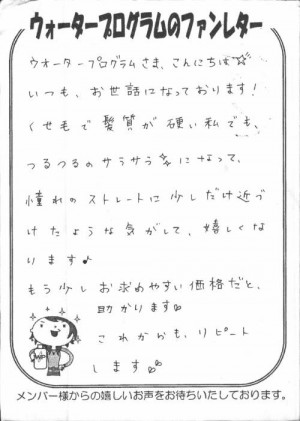 ウォータープログラムのファンレター
ウォータープログラムさま、こんにちは☆
いつも、お世話になっております!
くせ毛で髪質が硬い私でも、
つるつるのサラサラ✨になって、
憧れのストレートに少しだけ近づ
けたような気がして、嬉しくな
ります♪
もう少しお求めやすい価格だと、
助かります
これからも、リピート
します
メンバー様からの嬉しいお声をお待ちいたしております。